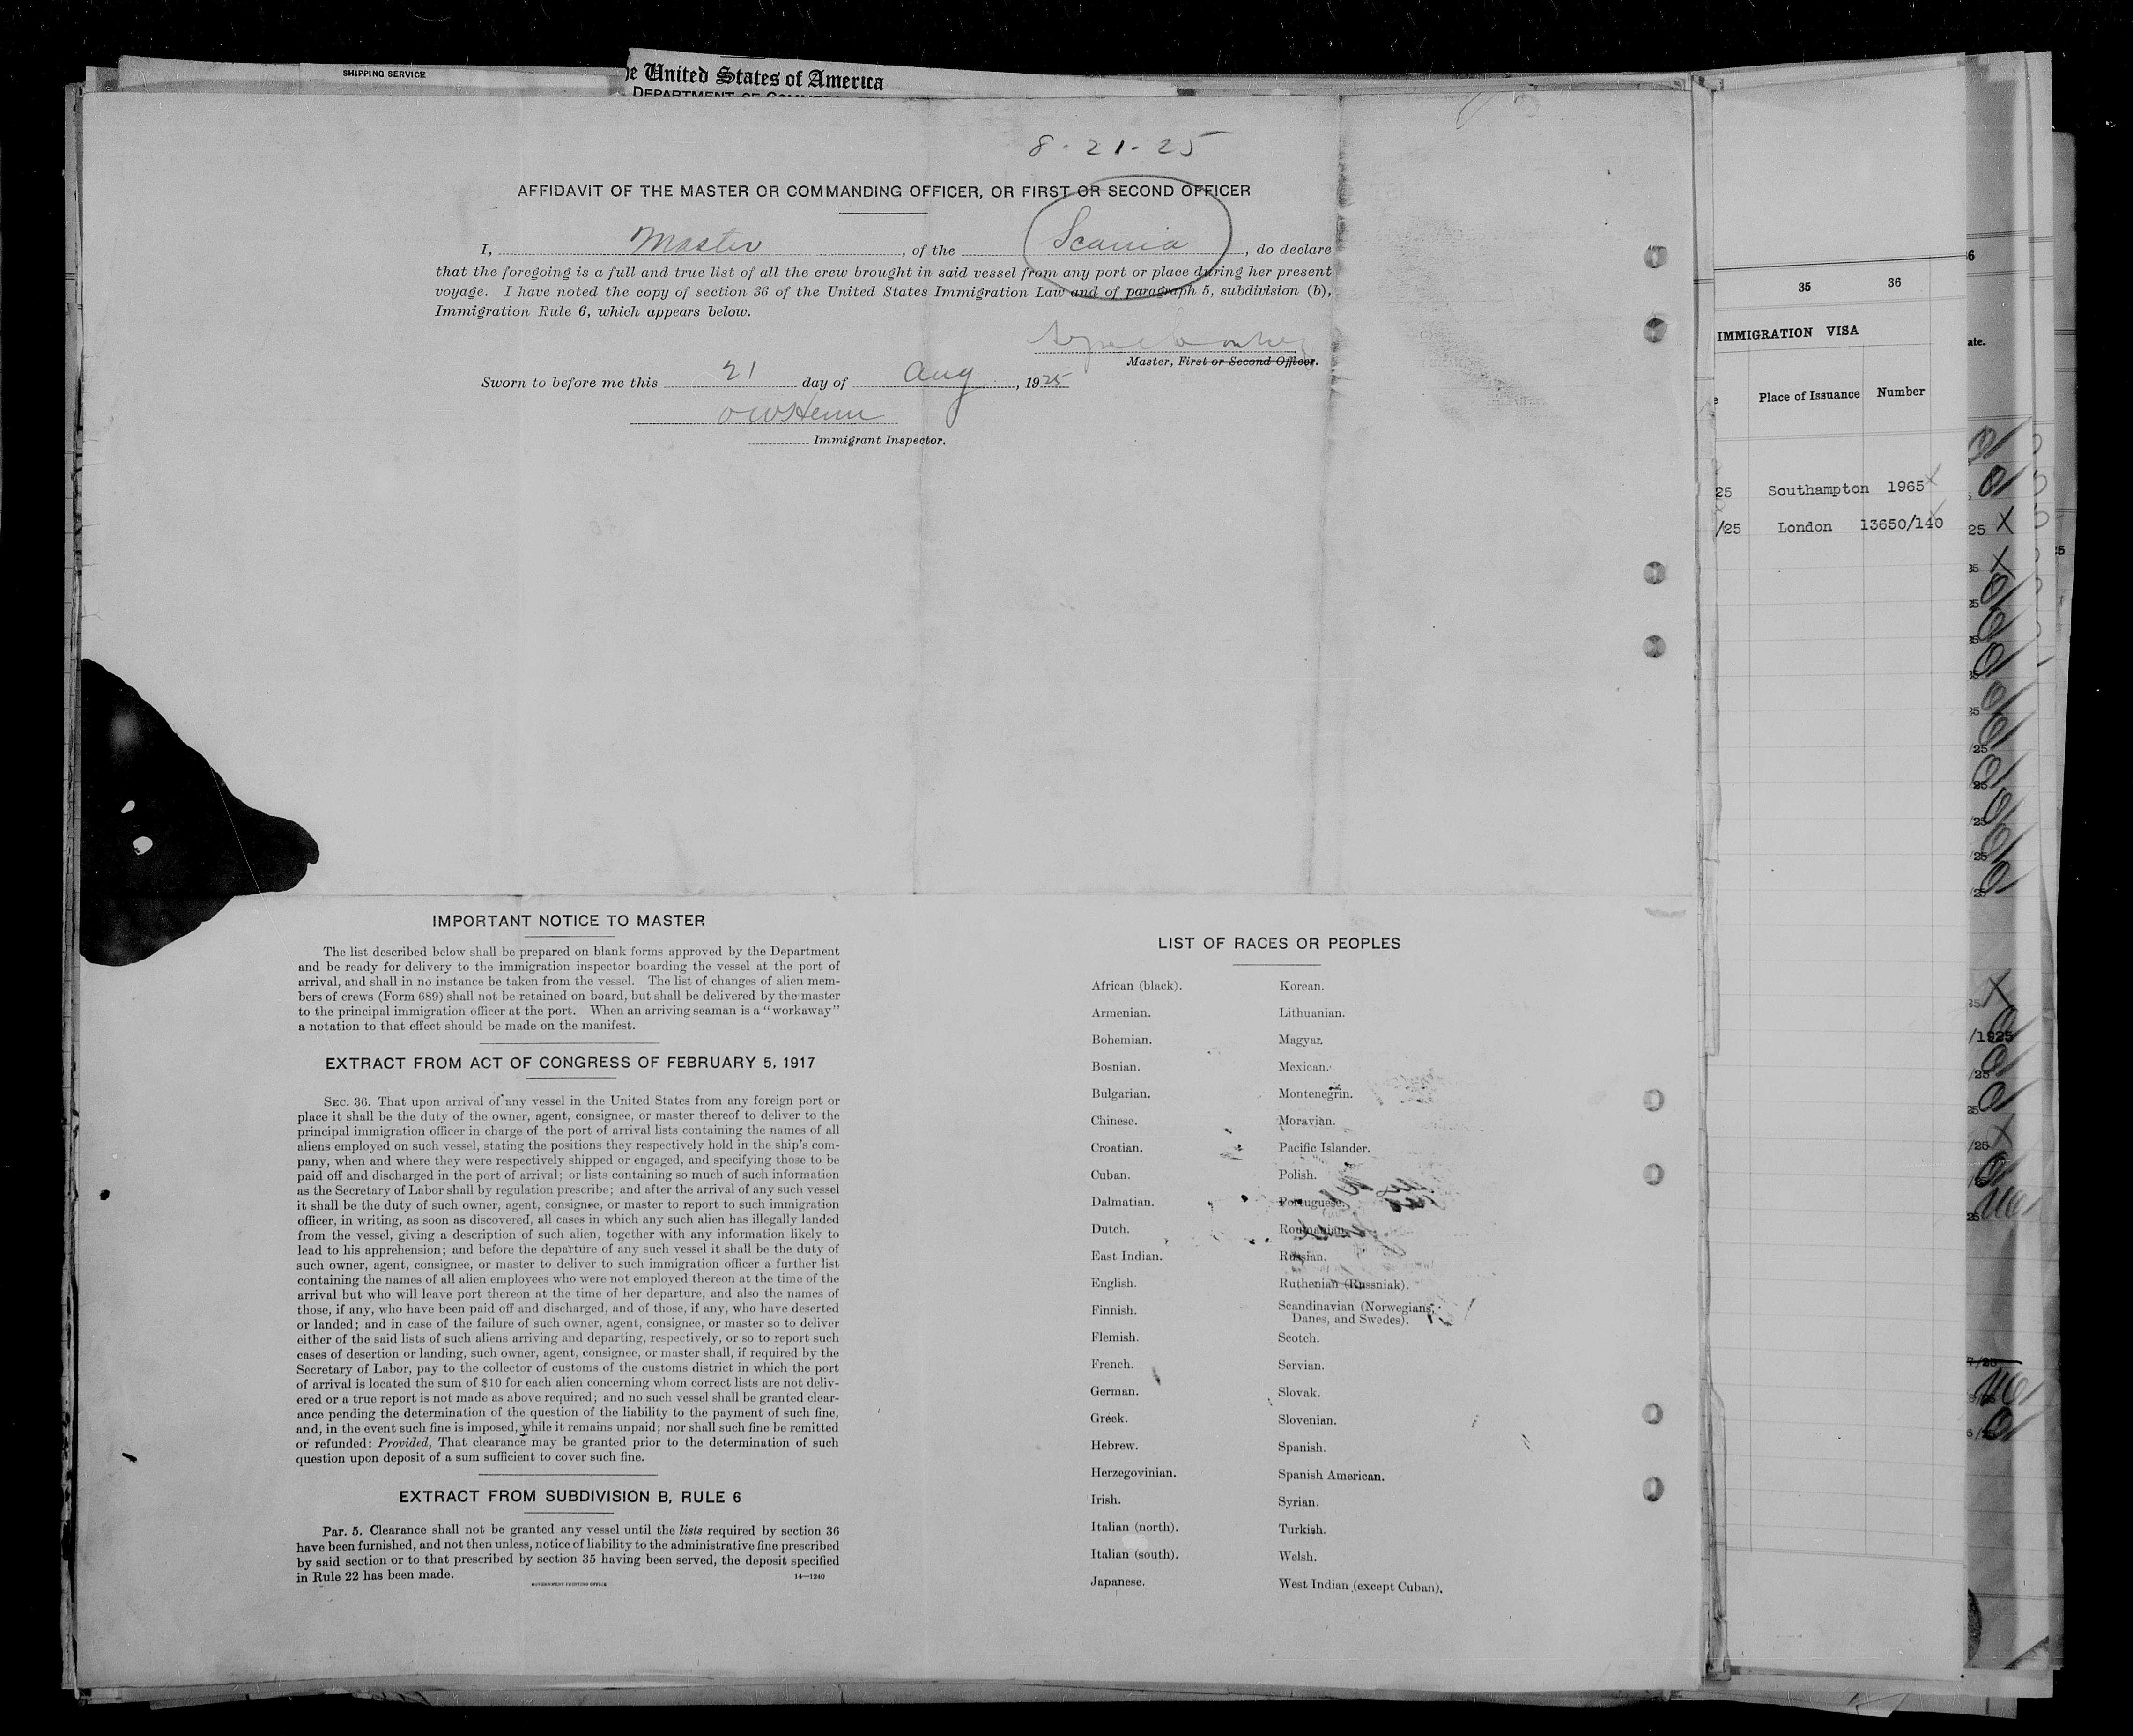 SHIPPING SERVICE
United States of America
8-21-25
AFFIDAVIT OF THE MASTER OR COMMANDING OFFICER, OR FIRST OR SECOND OFFICER
I, Master, of the Scania, do declare
that the foregoing is a full and true list of all the crew brought in said vessel from any port or place during her present
voyage. I have noted the copy of section 36 of the United States Immigration Law and of paragraph 5, subdivision (b),
Immigration Rule 6, which appears below.
Master, First or Second Officer.
Sworn to before me this 21 day of Aug, 1925
Immigrant Inspector.
IMPORTANT NOTICE TO MASTER
The list described below shall be prepared on blank forms approved by the Department
and be ready for delivery to the immigration inspector boarding the vessel at the port of
arrival, and shall in no instance be taken from the vessel. The list of changes of alien mem-
bers of crews (Form 689) shall not be retained on board, but shall be delivered by the master
to the principal immigration officer at the port. When an arriving seaman is a "workaway"
a notation to that effect should be made on the manifest.
EXTRACT FROM ACT OF CONGRESS OF FEBRUARY 5, 1917
SEC. 36. That upon arrival of any vessel in the United States from any foreign port or
place it shall be the duty of the owner, agent, consignee, or master thereof to deliver to the
principal immigration officer in charge of the port of arrival lists containing the names of all
aliens employed on such vessel, stating the positions they respectively hold in the ship's com-
pany, when and where they were respectively shipped or engaged, and specifying those to be
paid off and discharged in the port of arrival; or lists containing so much of such information
as the Secretary of Labor shall by regulation prescribe; and after the arrival of any such vessel
it shall be the duty of such owner, agent, consignee, or master to report to such immigration
officer, in writing, as soon as discovered, all cases in which any such alien has illegally landed
from the vessel, giving a description of such alien, together with any information likely to
lead to his apprehension; and before the departure of any such vessel it shall be the duty of
such owner, agent, consignee, or master to deliver to such immigration officer a further list
containing the names of all alien employees who were not employed thereon at the time of the
arrival but who will leave port thereon at the time of her departure, and also the names of
those, if any, who have been paid off and discharged, and of those, if any, who have deserted
or landed; and in case of the failure of such owner, agent, consignee, or master so to deliver
either of the said lists of such aliens arriving and departing, respectively, or so to report such
cases of desertion or landing, such owner, agent, consignee, or master shall, if required by the
Secretary of Labor, pay to the collector of customs of the customs district in which the port
of arrival is located the sum of $10 for each alien concerning whom correct lists are not deliv-
ered or a true report is not made as above required; and no such vessel shall be granted clear-
ance pending the determination of the question of the liability to the payment of such fine,
and, in the event such fine is imposed, while it remains unpaid; nor shall such fine be remitted
or refunded: Provided, That clearance may be granted prior to the determination of such
question upon deposit of a sum sufficient to cover such fine.
EXTRACT FROM SUBDIVISION B, RULE 6
Par. 5. Clearance shall not be granted any vessel until the lists required by section 36
have been furnished, and not then unless, notice of liability to the administrative fine prescribed
by said section or to that prescribed by section 35 having been served, the deposit specified
in Rule 22 has been made.
14—1240
GOVERNMENT PRINTING OFFICE
LIST OF RACES OR PEOPLES
African (black).
Armenian.
Bohemian.
Bosnian.
Bulgarian.
Chinese.
Croatian.
Cuban.
Dalmatian.
Dutch.
East Indian.
English.
Finnish.
Flemish.
French.
German.
Greek.
Hebrew.
Herzegovinian.
Irish.
Italian (north).
Italian (south).
Japanese.
Korean.
Lithuanian.
Magyar.
Mexican.
Montenegrin.
Moravian.
Pacific Islander.
Polish.
Portuguese.
Roumanian.
Russian.
Ruthenian (Russniak).
Scandinavian (Norwegians,
Danes, and Swedes).
Scotch.
Servian.
Slovak.
Slovenian.
Spanish.
Spanish American.
Syrian.
Turkish.
Welsh.
West Indian (except Cuban).
35 36
IMMIGRATION VISA
Place of Issuance Number
25 Southampton 1965
/25 London 13650/140